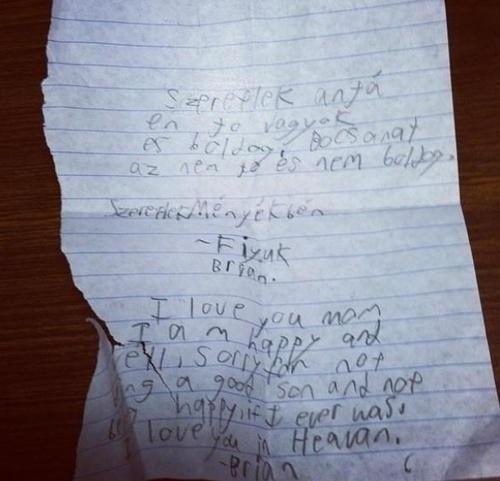 Szeretlek antá
en jo vagyok
es boldog, Bocsanat
az nen jo es nem boldog.
Szeretlek Ményékbén
-Fiyuk
Brian.
I love you mom
I am happy and
ell, Sorry for not
ing a good son and not
happy, if I ever was.
I love you in Heavan.
-Brian